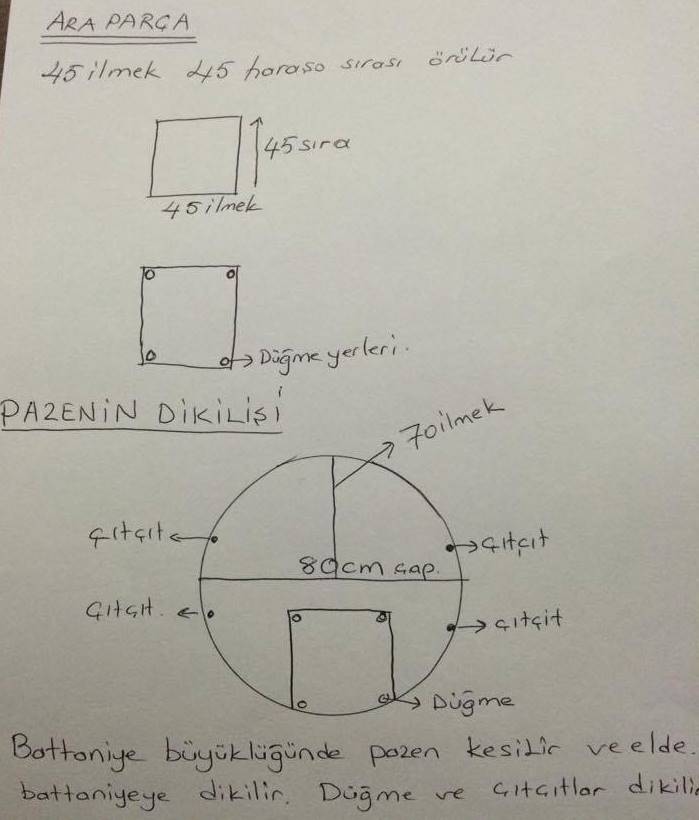 ARA PARÇA
45 ilmek 45 haraşo sırası örülür
45 sıra
45 ilmek
Düğme yerleri.
PAZENİN DİKİLİŞİ
70 ilmek
çıtçıt
çıtçıt
80cm çap.
çıtçıt.
çıtçıt
Düğme
Battaniye büyüklüğünde pazen kesilir ve elde.
battaniyeye dikilir. Düğme ve çıtçıtlar dikilir